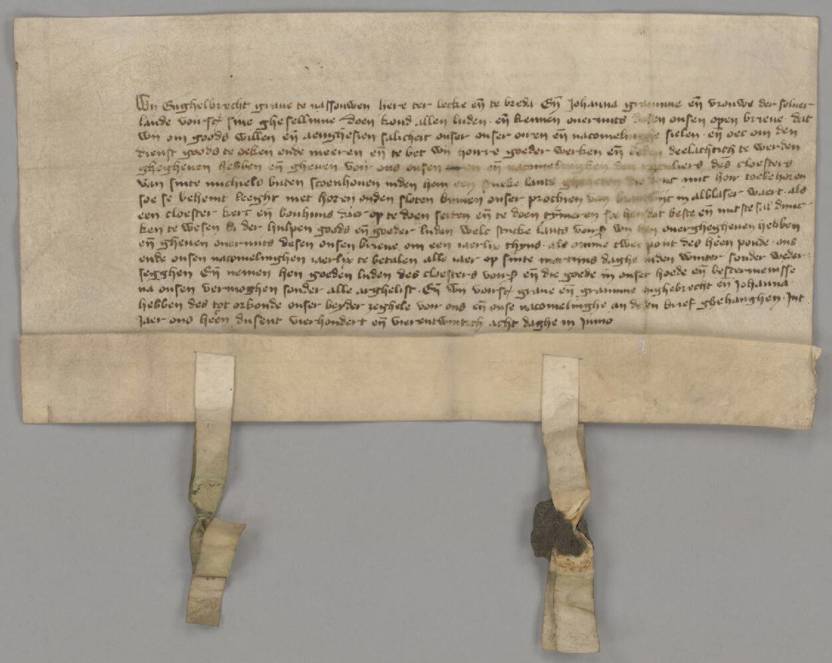 Wij Enghelbrecht graue te nassouwen here ter lecke eñ te breda Eñ Johanna grauinne eñ vrouwe der seluer
lande vorsẜ sine ghesellinne doen kond allen luden eñ kennen ouermits desen onsen open brieue dat
wij om goods willen eñ aenghesien salicheit onser onser oiren eñ nacomelinghe sielen eñ oec om den
dienst goods te oeken ende meeren eñ te bet in hoirre goeder werken eñ deelachtich te werden
ghegheuen hebben eñ gheuen voir ons onsen eñ nacomelinghen des cloesters
van sinte michiels buten scoenhouen inden hem een stucke lants gheheten die mit hoir toebehoren
soe se bekeint leeght met hozen onden sloten binnen onser prochien van in alblasser waert als
een cloester kerc eñ bouhuus dair op te doen setten eñ te doen tymmeren soe hen dat beste eñ nutste sal dunc
ken te wesen bi der hulpen goods eñ goeder luden welc stucke lants vorsẜ wij hen ouerghegheuen hebben
eñ gheuen ouermits desen onsen brieue om een iaerlix thyns als omme twee pont des heeñ ponde ons
ende onsen nacomelinghen iaerlix te betalen alle iaer op sinte martijns daghe inden winter sonder weder
segghen Eñ nemen hen goeden luden des cloesters vorsẜ eñ die goede in onser hoede eñ beschermenisse
na onsen vermoghen sonder alle arghelist Eñ wij vorsẜ graue eñ grauinne enghebrecht eñ Johanna
hebben des tot orkonde onser beyder zeghele voir ons eñ onse nacomelinghe an desen brief ghehanghen Int
Jaer ons heeñ dusent vierhondert eñ vierentwintich acht daghe in Junio